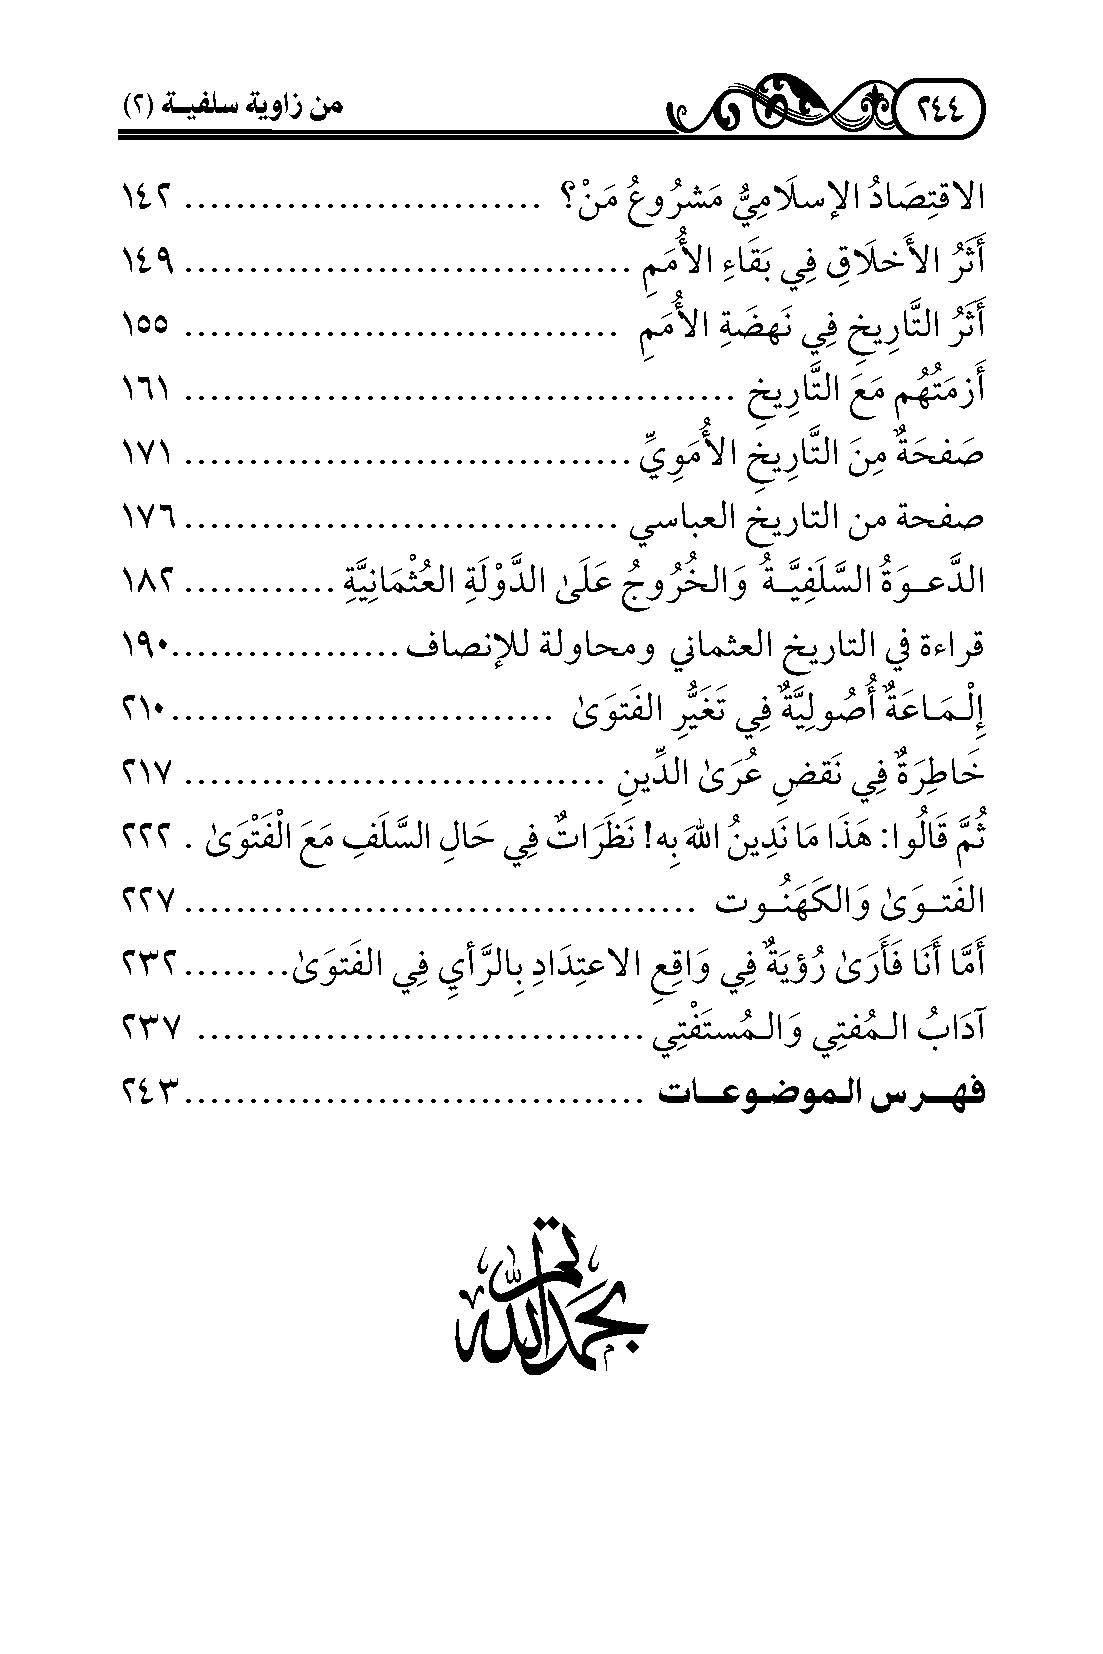 ٢٤٤ من زاوية سلفيـة (٢)
الاقتِصَادُ الإسلَامِيُّ مَشرُوعُ مَنْ؟ ............................ ١٤٢
أَثَرُ الأَخلَاقِ فِي بَقَاءِ الأُمَمِ ................................... ١٤٩
أَثَرُ التَّارِيخِ فِي نَهضَةِ الأُمَمِ .................................. ١٥٥
أَزمَتُهُم مَعَ التَّارِيخِ ........................................... ١٦١
صَفحَةٌ مِنَ التَّارِيخِ الأُمَوِيِّ ................................... ١٧١
صفحة من التاريخ العباسي .................................. ١٧٦
الدَّعـوَةُ السَّلَفِيَّـةُ وَالخُرُوجُ عَلَىٰ الدَّوْلَةِ العُثْمَانِيَّةِ ............ ١٨٢
قراءة في التاريخ العثماني ومحاولة للإنصاف .................. ١٩٠
إِلْـمَـاعَةٌ أُصُولِيَّةٌ فِي تَغَيُّرِ الفَتوَىٰ .............................. ٢١٠
خَاطِرَةٌ فِي نَقضِ عُرَىٰ الدِّينِ ................................. ٢١٧
ثُمَّ قَالُوا: هَذَا مَا نَدِينُ اللهَ بِهِ! نَظَرَاتٌ فِي حَالِ السَّلَفِ مَعَ الْفَتْوَىٰ . ٢٢٢
الفَتـوَىٰ وَالكَهَنُـوت ........................................ ٢٢٧
أَمَّا أَنَا فَأَرَىٰ رُؤيَةٌ فِي وَاقِعِ الاعتِدَادِ بِالرَّأيِ فِي الفَتوَىٰ........ ٢٣٢
آدَابُ الـمُفتِي وَالـمُستَفْتِي ................................... ٢٣٧
فهـرس الـموضـوعـات .................................... ٢٤٣
تم بحمد الله